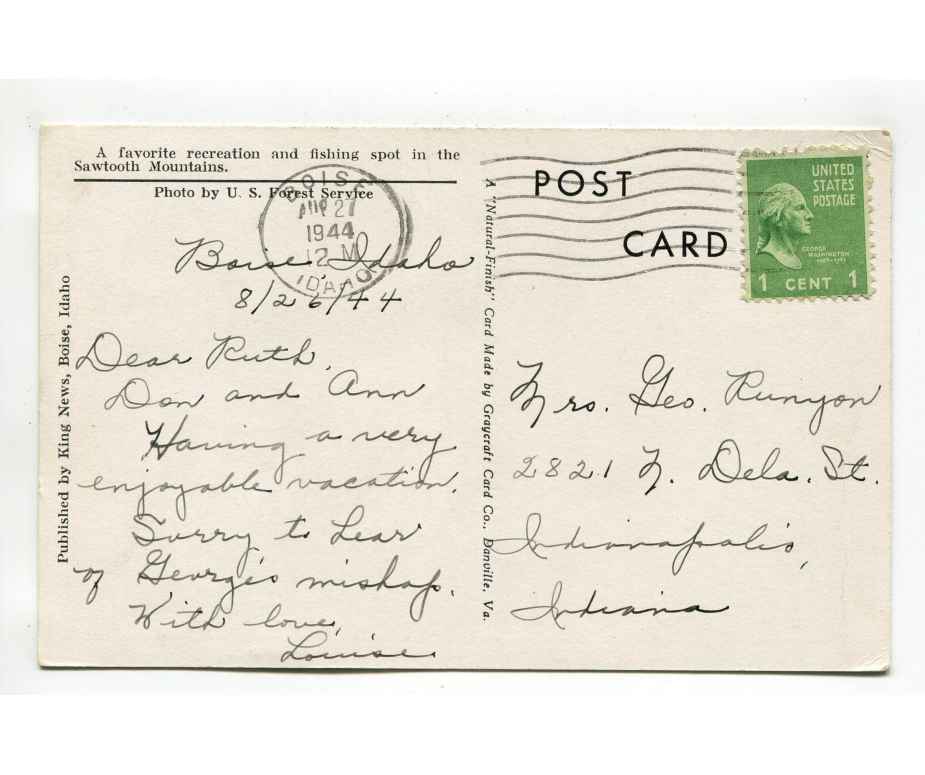 A favorite recreation and fishing spot in the
Sawtooth Mountains.
Photo by U. S. Forest Service
BOISE
AUG 27
1944
12 M
IDAHO
Boise, Idaho
8/26/44
Dear Ruth,
Don and Ann
Having a very
enjoyable vacation.
Sorry to hear
of George's mishap.
With love,
Louise.
Published by King News, Boise, Idaho
A "Natural-Finish" Card Made by Graycraft Card Co., Danville, Va.
POST
CARD
UNITED
STATES
POSTAGE
GEORGE
WASHINGTON
1 CENT 1
Mrs. Geo. Runyon
2821 N. Dela. St.
Indianapolis,
Indiana